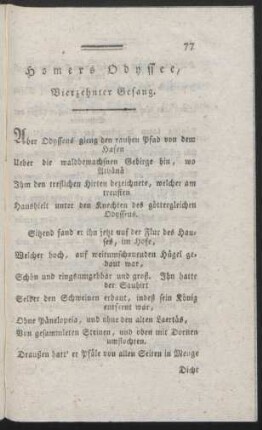 77
Homers Odyssee,
Vierzehnter Gesang.
Aber Odysseus gieng den rauhen Pfad von dem
Hafen
Ueber die waldbewachsnen Gebirge hin, wo
Athänä
Ihm den treflichen Hirten bezeichnete, welcher am
treusten
Haushielt unter den Knechten des göttergleichen
Odysseus.
Sitzend fand er ihn jetzt auf der Flur des Hau-
ses, im Hofe,
Welcher hoch, auf weitumschauendem Hügel ge-
baut war,
Schön und ringsumgehbar und groß. Ihn hatte
der Sauhirt
Selber den Schweinen erbaut, indeß sein König
entfernt war,
Ohne Pänelopeia, und ohne den alten Laertäs,
Von gesammleten Steinen, und oben mit Dornen
umflochten.
Draußen hatt' er Pfäle von allen Seiten in Menge
Dicht